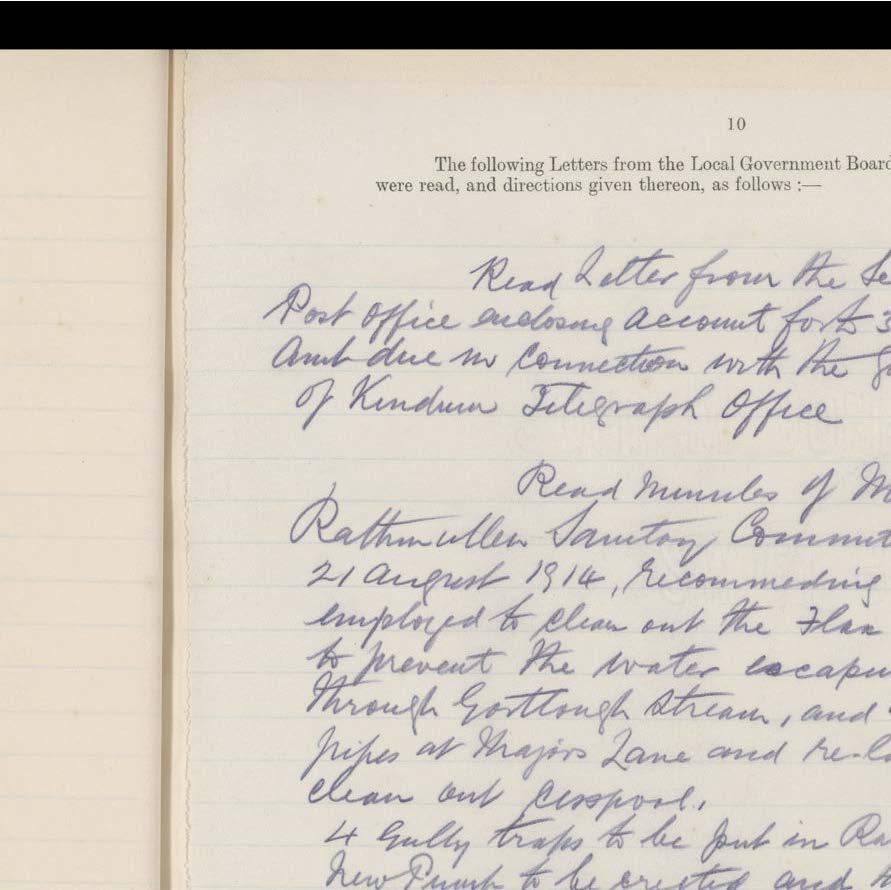 10
The following Letters from the Local Government Board
were read, and directions given thereon, as follows :—
Read Letter from the Se
Post Office enclosing account for £3
Amt due in connection with the
of Kindrum Telegraph Office
Read Minutes of M
Rathmullen Sanitary Committ
21 August 1914, recommeding
employed to clean out the Flax
to prevent the water escapin
through Gortlough Stream, and
pipes at Majors Lane and re-la
clean out cesspool.
4 Gully traps to be put in Ra
New Pump to be erected and